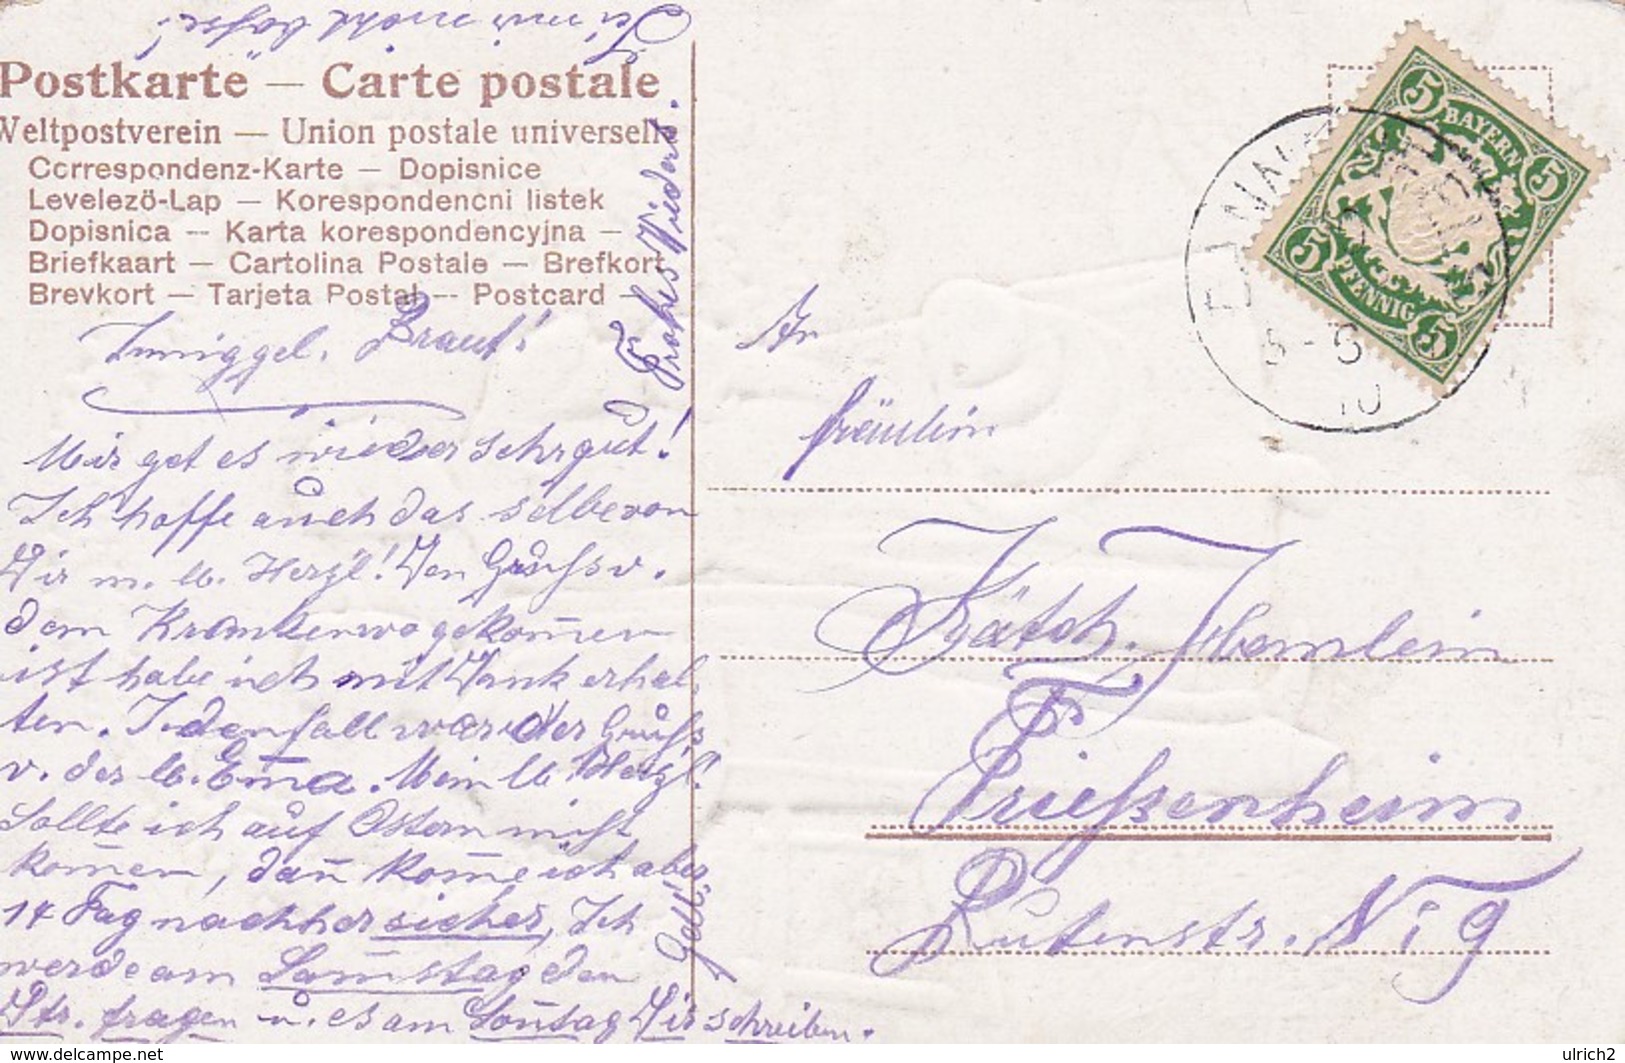 Sei mir nicht böse!
Postkarte — Carte postale
Weltpostverein — Union postale universelle
Correspondenz-Karte — Dopisnice
Levelezö-Lap — Korespondencni listek
Dopisnica — Karta korespondencyjna —
Briefkaart — Cartolina Postale — Brefkort
Brevkort — Tarjeta Postal — Postcard —
Inniggel. Braut!
Mir get es wieder sehr gut!
Ich hoffe auch das selbe von
Dir m. lb. Herzl! Den Gruß v.
dem Krankenwagekom̄en
ist habe ich mit Dank erhal
ten. Jedenfall war der Gruß
v. der lb. Em̄a. Mein lb. Herzl!
Sollte ich auf Ostern nicht
kom̄en, dan̄ kom̄e ich aber
14 Tag nachher sicher, Ich
werde am Samstag den
Str. fragen u. es am Son̄tag Dir schreiben.
Gell:
Frohes Wieders.
An
Fräulein
Kätch.
Frießenheim
Rutenstr. N: 9
5 BAYERN 5
5 PFENNIG 5